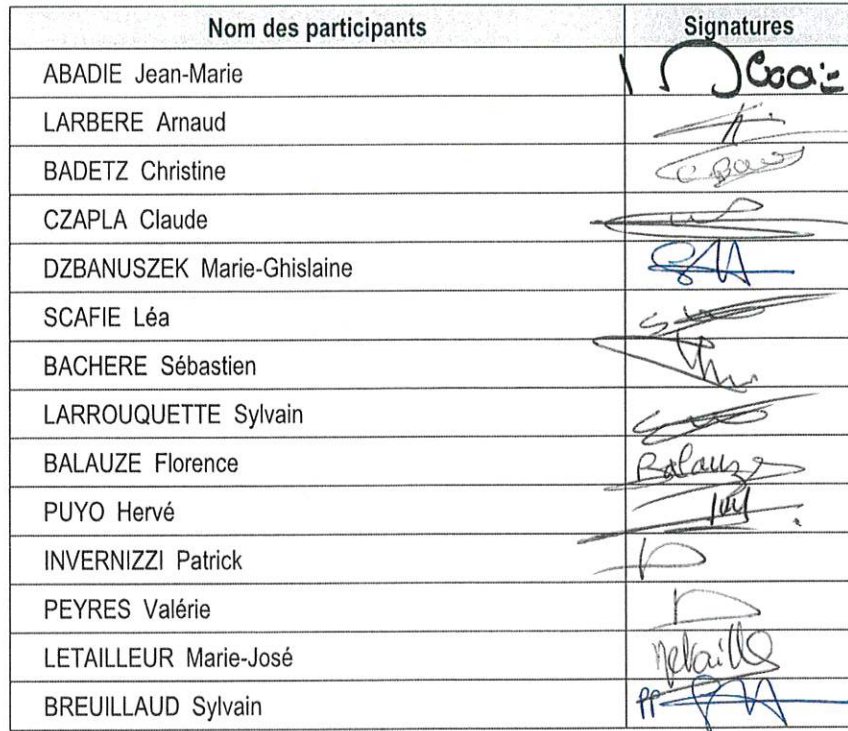 Nom des participants Signatures
ABADIE Jean-Marie
LARBERE Arnaud
BADETZ Christine
CZAPLA Claude
DZBANUSZEK Marie-Ghislaine
SCAFIE Léa
BACHERE Sébastien
LARROUQUETTE Sylvain
BALAUZE Florence Balauze
PUYO Hervé
INVERNIZZI Patrick
PEYRES Valérie
LETAILLEUR Marie-José
BREUILLAUD Sylvain PP